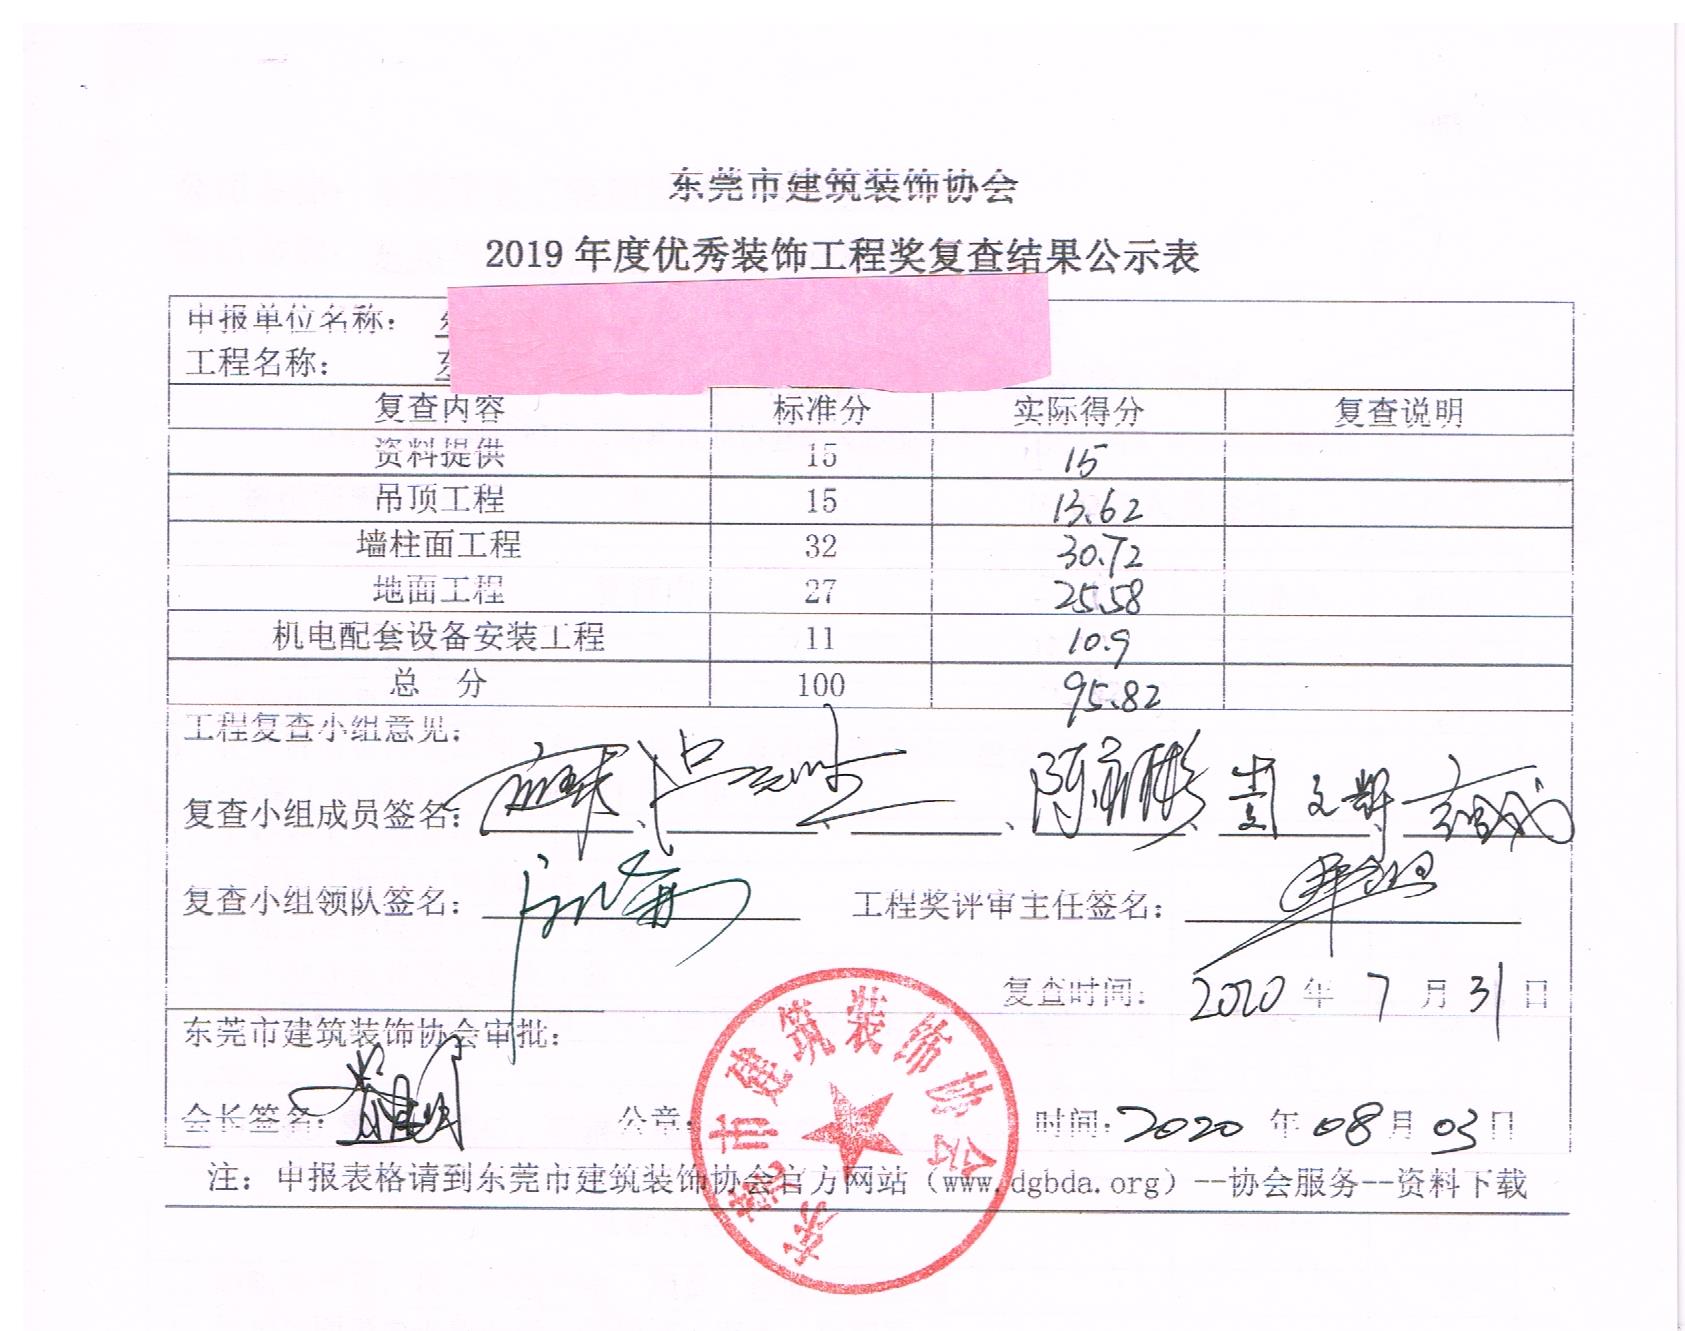 东莞市建筑装饰协会
2019 年度优秀装饰工程奖复查结果公示表
申报单位名称：
工程名称：
复查内容 标准分 实际得分 复查说明
资料提供 15 15
吊顶工程 15 13.62
墙柱面工程 32 30.72
地面工程 27 25.58
机电配套设备安装工程 11 10.9
总 分 100 95.82
工程复查小组意见：
复查小组成员签名： 、 、 、 、
复查小组领队签名： 工程奖评审主任签名：
复查时间： 2020 年 7 月 31 日
东莞市建筑装饰协会审批：
会长签名： 公章： 时间：2020 年 08 月 03 日
东莞市建筑装饰协会
注：申报表格请到东莞市建筑装饰协会官方网站（www.dgbda.org）--协会服务--资料下载